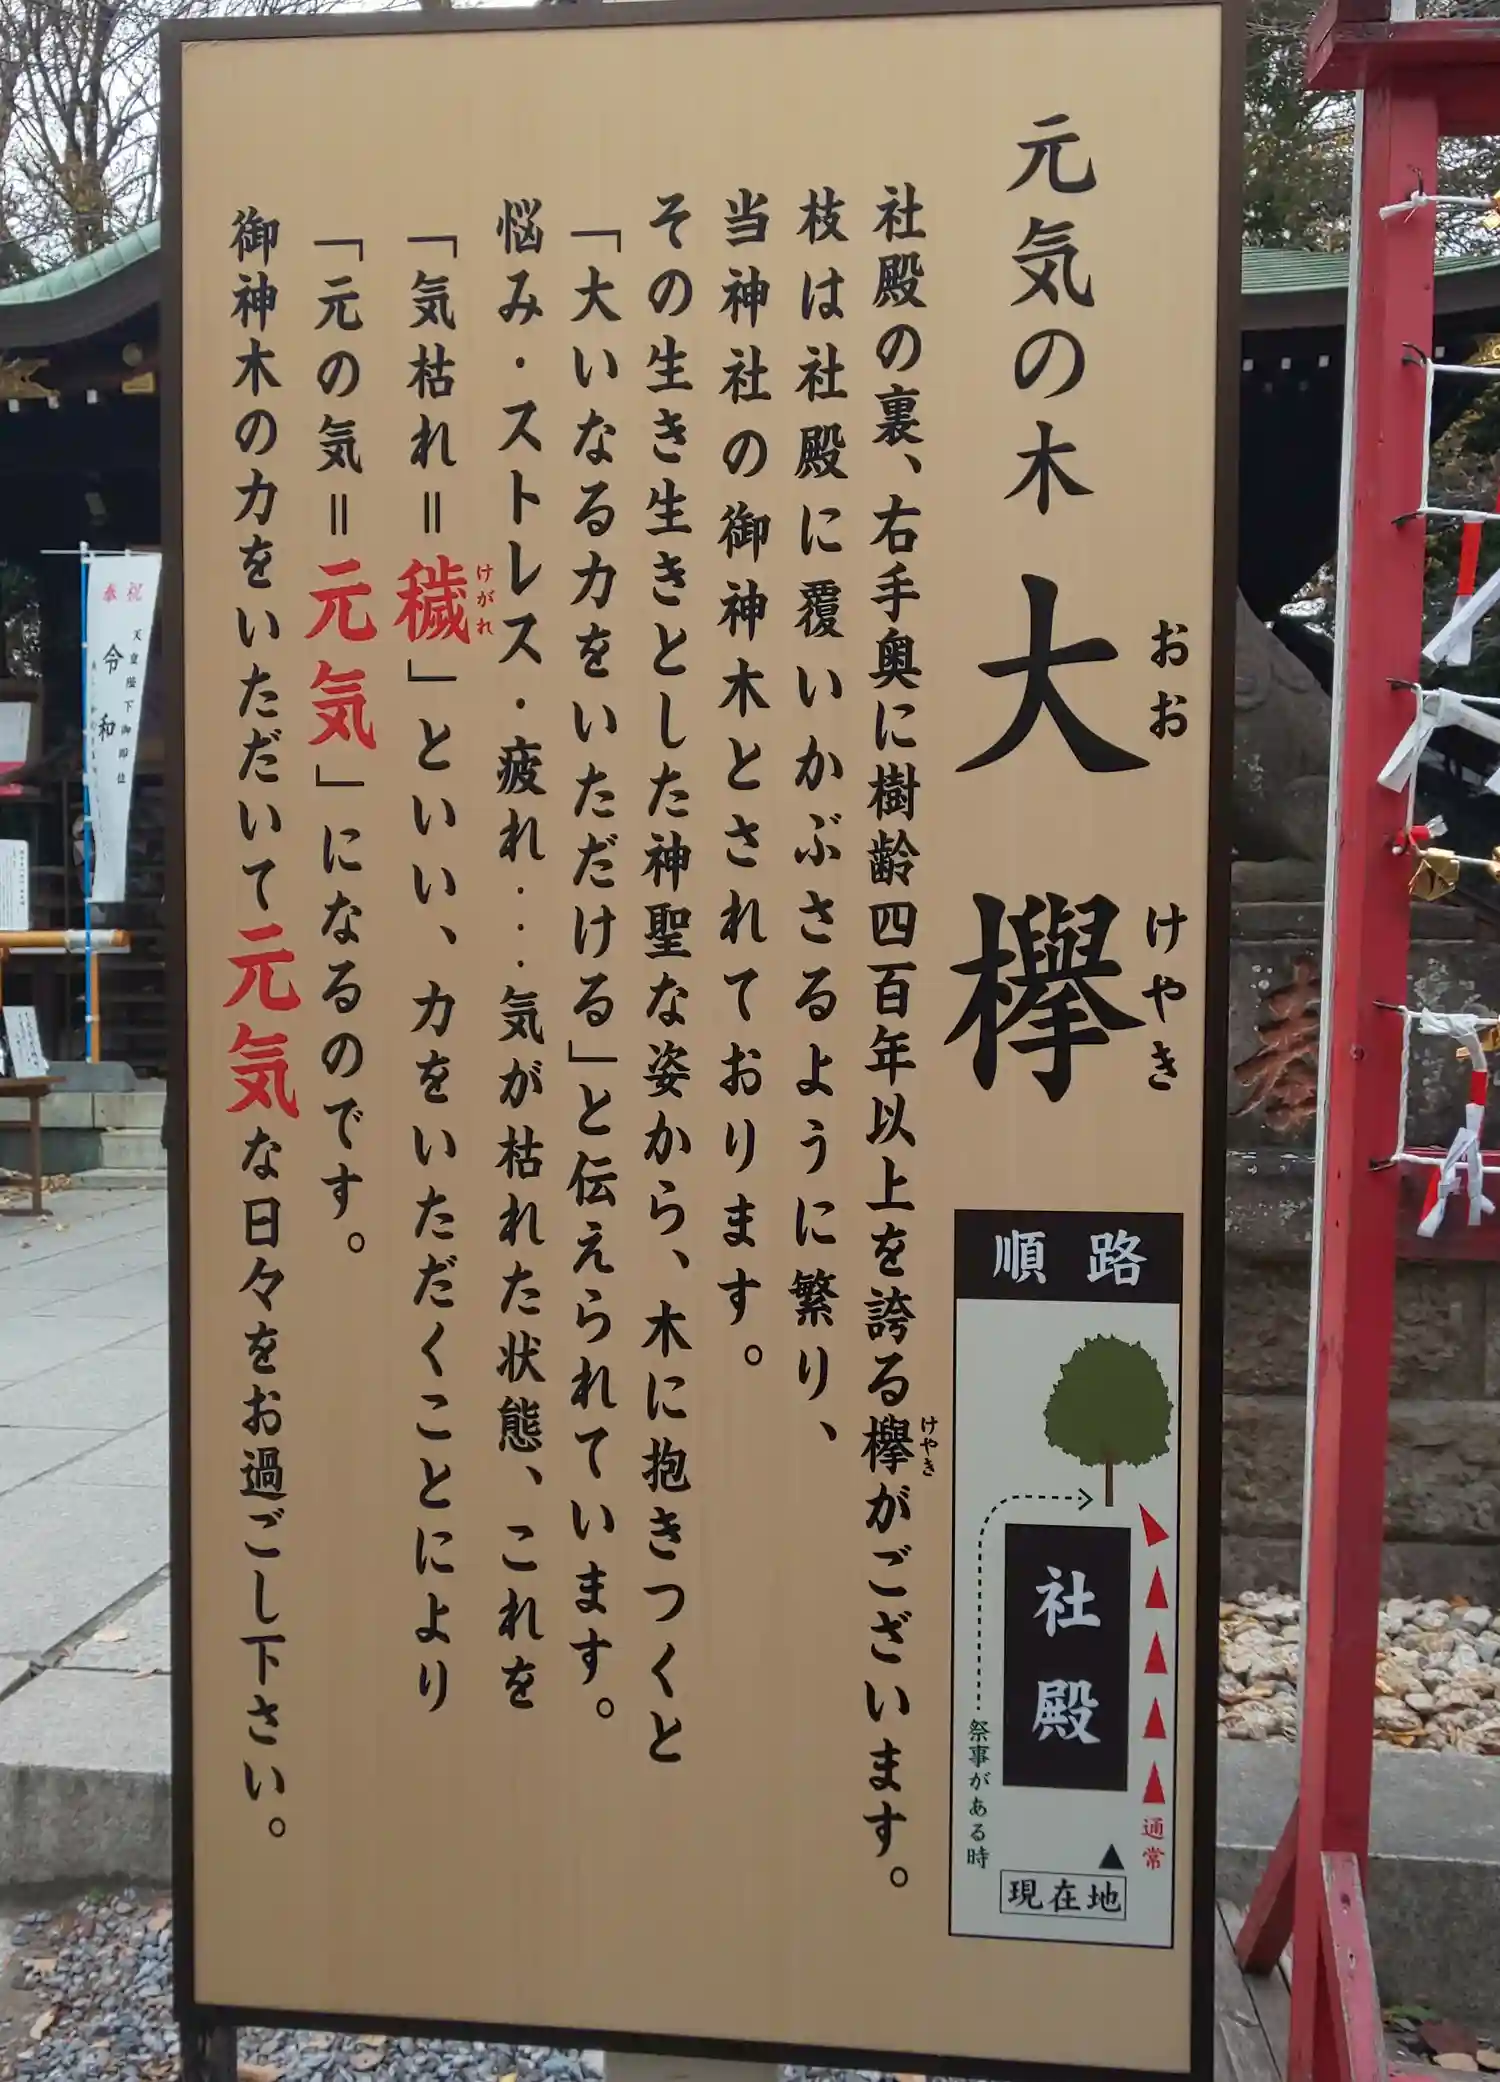 元気の木 大欅
おおけやき
社殿の裏、右手奥に樹齢四百年以上を誇る欅がございます。
けやき
枝は社殿に覆いかぶさるように繁り、
当神社の御神木とされております。
その生き生きとした神聖な姿から、木に抱きつくと
「大いなる力をいただける」と伝えられています。
悩み・ストレス・疲れ……気が枯れた状態、これを
「気枯れ=穢」といい、力をいただくことにより
けがれ
「元の気=元気」になるのです。
御神木の力をいただいて元気な日々をお過ごし下さい。
順路
社殿
通常
祭事がある時
現在地
奉祝
天皇陛下御即位
令和